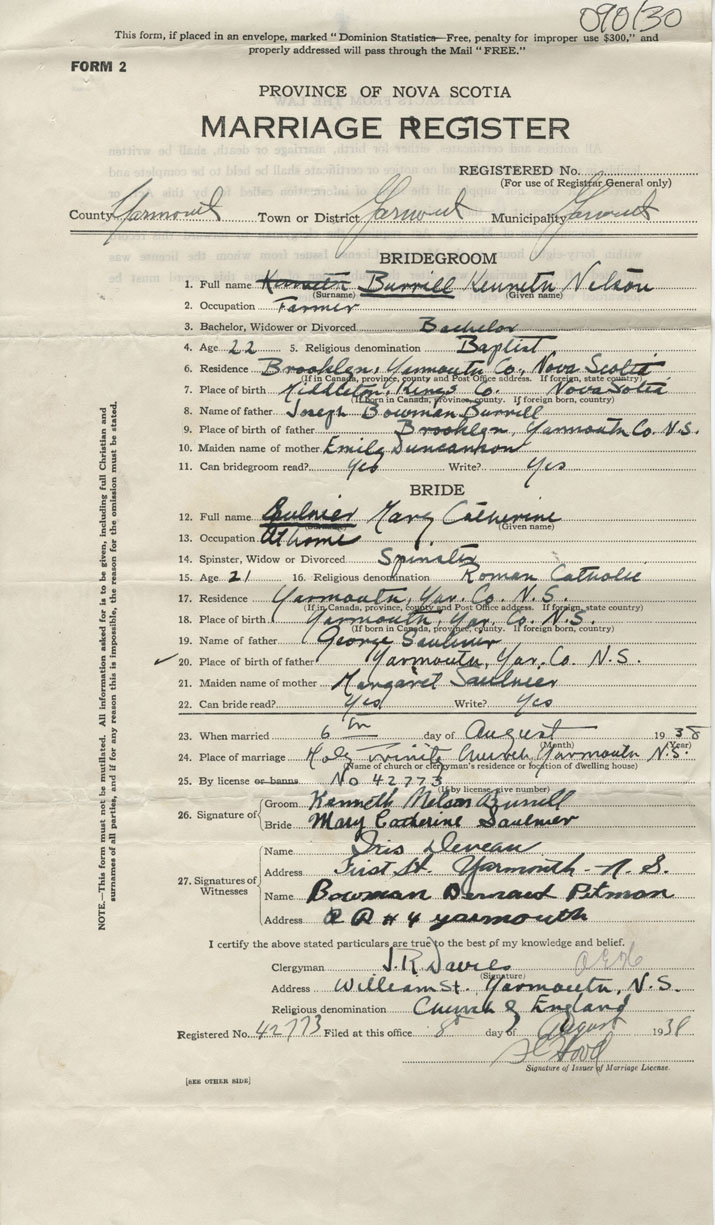 090130
This form, if placed in an envelope, marked "Dominion Statistics—Free, penalty for improper use $300," and
properly addressed will pass through the Mail "FREE."
FORM 2
PROVINCE OF NOVA SCOTIA
MARRIAGE REGISTER
REGISTERED No.
(For use of Registrar General only)
County Yarmouth Town or District Yarmouth Municipality Yarmouth
BRIDEGROOM
1. Full name Kenneth Burrill Kenneth Nelson
(Surname) (Given name)
2. Occupation Farmer
3. Bachelor, Widower or Divorced Bachelor
4. Age 22 5. Religious denomination Baptist
6. Residence Brooklyn, Yarmouth Co., Nova Scotia
(If in Canada, province, county and Post Office address. If foreign, state country)
7. Place of birth Middleton, Kings Co. Nova Scotia
(If born in Canada, province, county. If foreign born, country)
8. Name of father Joseph Bowman Burrill
9. Place of birth of father Brooklyn, Yarmouth Co. N.S.
10. Maiden name of mother Emily Duncanson
11. Can bridegroom read? Yes Write? Yes
BRIDE
12. Full name Saulnier Mary Catherine
(Given name)
13. Occupation At home
14. Spinster, Widow or Divorced Spinster
15. Age 21 16. Religious denomination Roman Catholic
17. Residence Yarmouth, Yar. Co. N.S.
(If in Canada, province, county and Post Office address. If foreign, state country)
18. Place of birth Yarmouth, Yar. Co. N.S.
(If born in Canada, province, county. If foreign born, country)
19. Name of father George Saulnier
20. Place of birth of father Yarmouth, Yar. Co. N.S.
21. Maiden name of mother Margaret Saulnier
22. Can bride read? Yes Write? Yes
23. When married 6th day of August 1938
(Month) (Year)
24. Place of marriage Holy Trinity Church Yarmouth N.S.
(Name of church or clergyman's residence or location of dwelling house)
25. By license or banns No 42773
(If by license give number)
26. Signature of Groom Kenneth Nelson Burrill
Bride Mary Catherine Saulnier
27. Signatures of Witnesses Name Iris Deveau
Address First St. Yarmouth - N.S.
Name Bowman Bernard Pitman
Address R R # 4 yarmouth
I certify the above stated particulars are true to the best of my knowledge and belief.
Clergyman J.R. Davies
(Signature)
Address William St. Yarmouth, N.S.
Religious denomination Church of England
Registered No. 42773 Filed at this office 8th day of August 1938
Hood
Signature of Issuer of Marriage License.
[SEE OTHER SIDE]
NOTE.—This form must not be mutilated. All information asked for is to be given, including full Christian and
surnames of all parties, and if for any reason this is impossible, the reason for the omission must be stated.